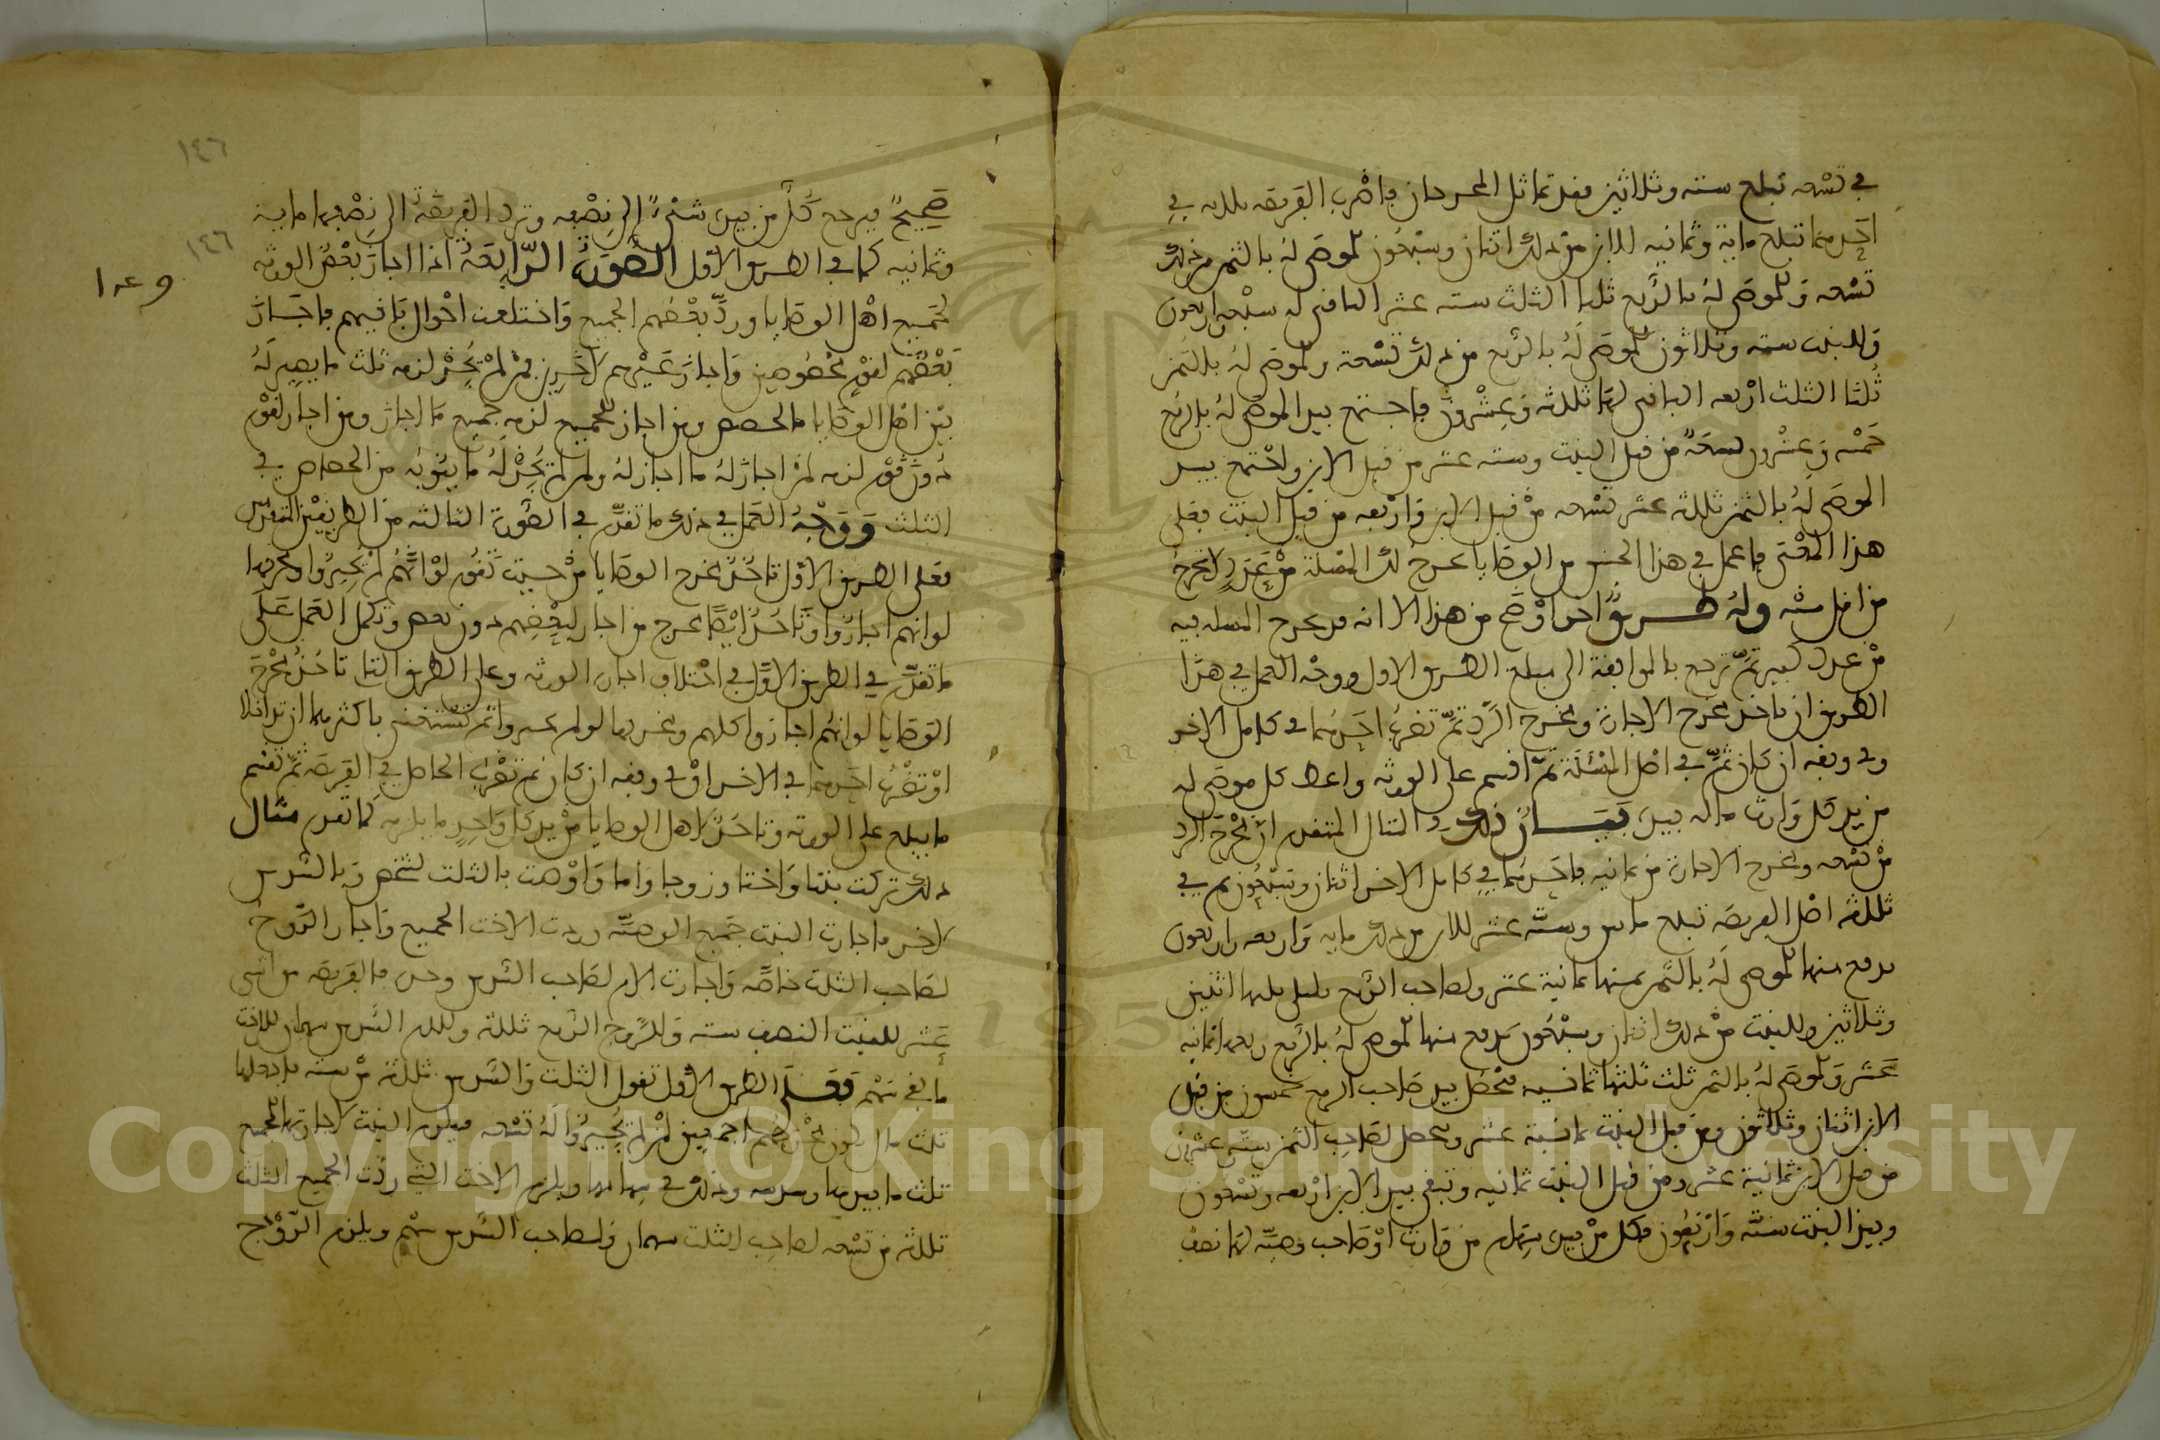 في تسعه تبلع سته وثلاثين فقد تماثل المخرجان فاضرب الفريضه ثلاثه في
احدهما تبلغ مايه وثمانيه للابن من ذلك اثنان وسبعون للموصى له بالثمن من ذلك
تسعه وللموصى له بالربع ثلثا الثلث سته عشر الباقي له سبعه واربعون
وللبنت سته وثلاثون للموصى له بالربع من ذلك تسعة وللموصى له بالثمن
ثلثا الثلث اربعه الباقي لها ثلثه وعشرون فاجتمع بيد الموصى له بالربع
خمسه وعشرون تسعة من قبل البنت وسته عشر من قبل الابن واجتمع بيد
الموصى له بالثمن ثلثه عشر تسعه من قبل الابن واربعه من قبل البنت فعلى
هذا المعنى فاعمل في هذا الجنس من الوصايا تخرج لك المسئلة من عدد لا تخرج
من اقل منه وله طريق اخر اوضح من هذا الا انه قد تخرج المسله فيه
من عدد كبير ثم ترجع بالموافقة الى مبلغ الطريق الاول ووجه العمل في هذا
الطريق ان تاخذ مخرج الاجازة ومخرج الرد ثم تضرب احدهما في كامل الاخر
وفي وفقه ان كان ثم في اصل المسئلة ثم اقسم على الورثه واعط كل موصى له
من يد كل وارث ماله بيده بيان ذلك في المثال المتقدم ان مخرج الرد
من تسعه ومخرج الاجازة من ثمانيه فاحدهما في كامل الاخر اثنان وسبعون ثم في
ثلثه اصل الفريضه تبلع مايتين وسته عشر للابن من ذلك مايه واربعه واربعون
يدفع منها للموصى له بالثمن ثمنها ثمانية عشر ولصاحب الربع ثلثي ثلثها اثنين
وثلاثين وللبنت من ذلك اثنان وسبعون يدفع منها للموصى له بالربع ربعها ثمانيه
عشر وللموصى له بالثمن ثلث ثلثها ثمانيه فيحصل بيد صاحب الربع خمسون من قبل
الابن اثنان وثلاثون ومن قبل البنت ثمانية عشر ويحصل لصاحب الثمن سته وعشرون
من قبل الابن ثمانية عشر ومن قبل البنت ثمانيه وتبقى بيد الابن اربعه وتسعون
وبيد البنت سته واربعون فكل من بيده سهام من وارث او صاحب وصيه لها نصف
١٤٦
١٤٦
صحيح فيرجع كل من بيده شيء الى نصفه وترد الفريضة الى نصفها ماية
وثمانيه كما في الطريق الاول الصورة الرابعة اذا اجاز بعض الورثه
لجميع اهل الوصايا ورد بعضهم الجميع واختلفت احوال باقيهم فاجاز
بعضهم لقوم مخصوصين واجاز غيرهم لاخرين فمن لم يجز لزمه ثلث ما يصير له
بين اهل الوصايا بالحصص ومن اجاز للجميع لزمه جميع ما اجاز ومن اجاز لقوم
دون قوم لزمه لمن اجاز له ما اجاز له ولمن لم يجز له ما ينوبه من الحصاص في
الثلث ووجه العمل في ذلك ما تقدم في الصورة الثالثه من الطريقين المتقدمين
فعلى الطريق الاول تاخذ مخرج الوصايا من حيث تقوم لو انهم لم يجيزوا ومخرجها
لو انهم اجازوا وتاخذ ايضا مخرج من اجاز لبعضهم دون بعض وتكمل العمل على
ما تقدم في الطريق الاول في اختلاف اجازة الورثه وعلى الطريق الثاني تاخذ مخرج
الوصايا لو انهم اجازوا كلهم ومخرجها لو لم يجيزوا ثم تستغني باكثرهما ان تداخلا
او تضرب احدهما في الاخر او في وفقه ان كان ثم تضرب الحاصل في الفريضه ثم تقسم
ما يبلع على الورثه وتاخذ لاهل الوصايا من يد كل واحد ما يلزمه كما تقدم مثال
ذلك تركت بنتا واختا وزوجا واما واوصت بالثلث لشخص وبالسدس
لاخر فاجازت البنت جميع الوصيه وردت الاخت الجميع واجاز الزوج
لصاحب الثلث خاصه واجازت الام لصاحب السدس وحده فالفريضه من اثني
عشر للبنت النصف سته وللزوج الربع ثلثة وللام السدس سهمان للاخت
ما بقي سهم فعلى الطريق الاول تقول الثلث والسدس ثلثة من سته فاجعلها
ثلث مال يكون مخرجهم اجمعين لمن لم يجيزوا له تسعه فيلزم البنت لاجازتها الجميع
ثلث ما بيدها وسدسه وذلك في سهامها ويلزم الاخت التي ردت الجميع الثلث
ثلثه من تسعه لصاحب الثلث سهمان ولصاحب السدس سهم ويلزم الزوج